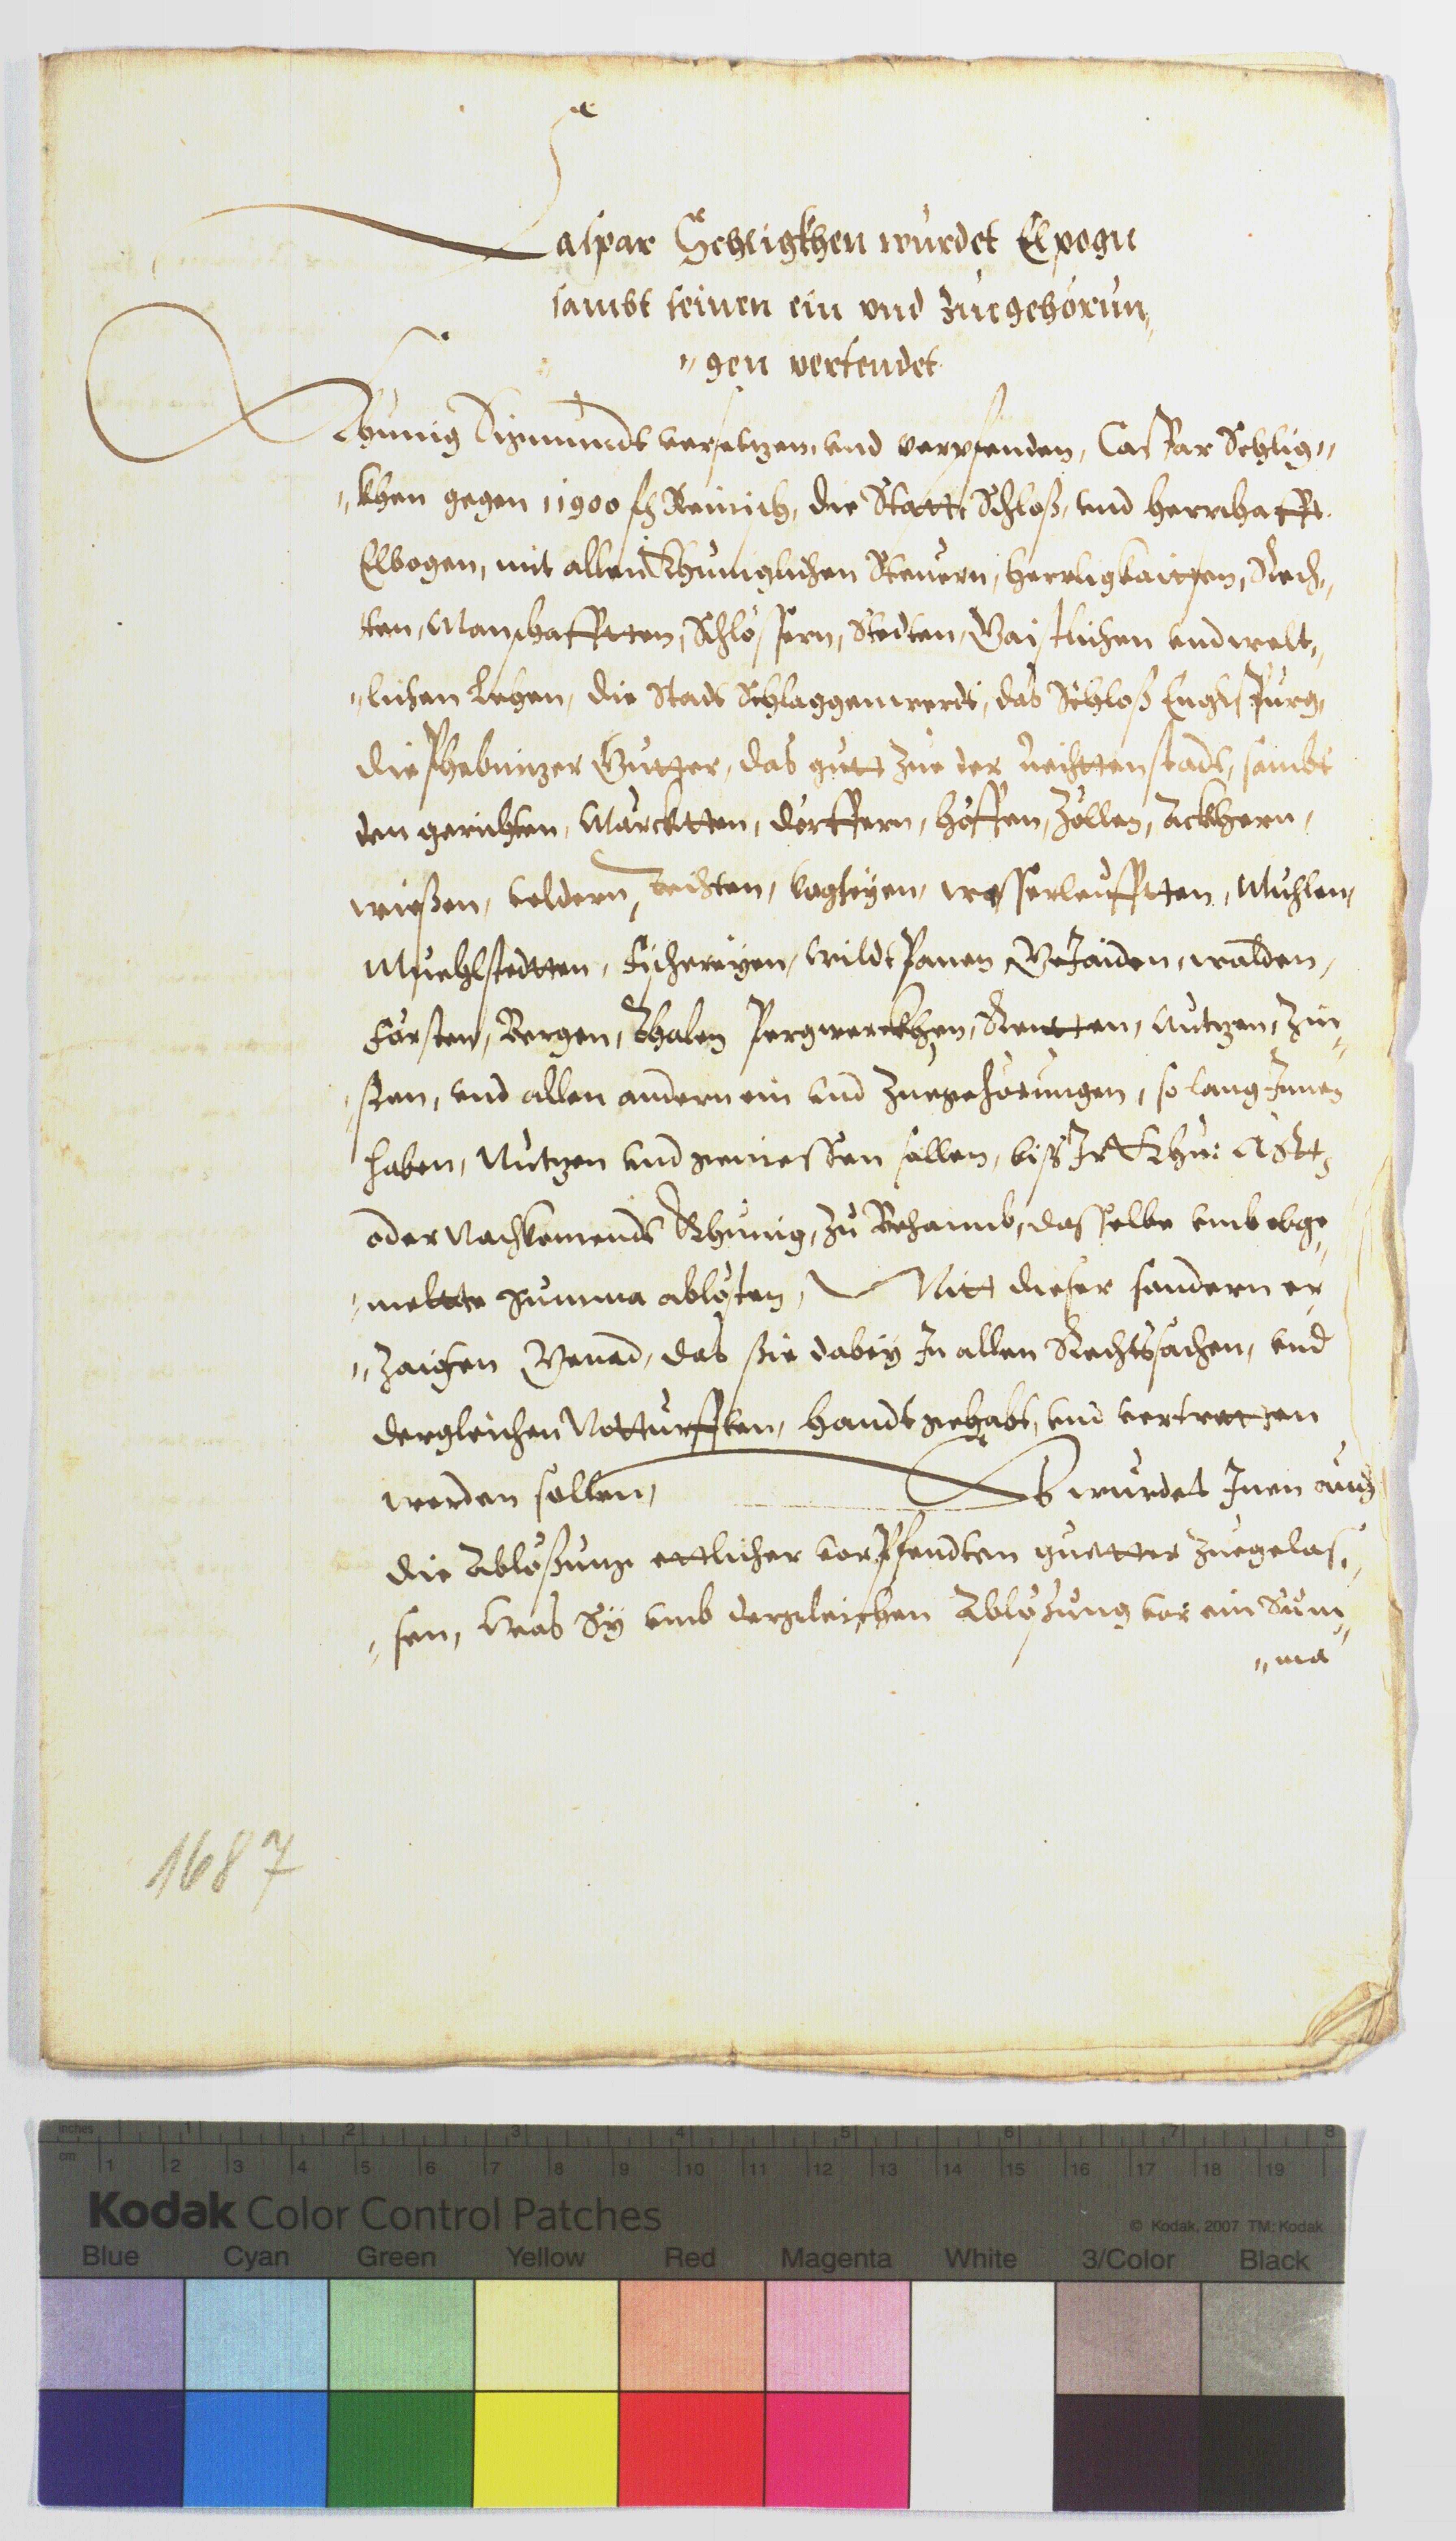 Caspar Schligkhen wurdet Elpogn
sambt seinen ein vnd Zuegehörun„
„gen versendet
Khunig Sigmundt versetzen vnd verpfenden, Caspar Schlig„
„khen gegen 11900 fl Reinisch, die Statt Schloß, vnd herrschafft
Elbogen, mit allen Khuniglichen Steuern, herrligkaitten, Rech„
ten, Manschafftten, Schlössern, Stedten, Gaistlichen vnd welt„
„lichen Lehen, die Stadt Schlaggenwerdt, das Schloß Englspurg,
die Guetter, das guett Zue der stadt, sambt
den gerichten, Märcktten, dörffern, höffen, Zöllen, Äckhern,
wießen, veldern, teichten, vogteyen, wasserleufftten, Muhlen,
Muehlstedtten, Fischereyen, Wildt Panen Gejaiden, wälden,
Försten, Bergen, Thalen Pergwerckhen, Rentten, Nutzen, Zin„
„ßen, vnd allen andern ein vnd Zuegehörungen, so lang Innen
haben, Nutzen vnd geniessen sollen, biß Ir Khu: Mtt,
oder Nachkomendt Khunig, Zu Behaimb, dasselbe vmb obge„
„meltte Summa ablösten, Mitt dieser sondern er„
„zaigten Genad, das sie dabey In allen Rechtssachen, vnd
dergleichen Notturfften, handtgehabt, vnd vertretten
werden sollen, Es wurdet Inen auch
die Ablößung ettlicher verpfendten guetter Zuegelas„
„sen, Was Sy vmb dergleichen Ablößung vor ein Sum„
„ma
1687
inches 1 2 3 4 5 6 7 8
cm 1 2 3 4 5 6 7 8 9 10 11 12 13 14 15 16 17 18 19
Kodak Color Control Patches
© Kodak, 2007 TM: Kodak
Blue Cyan Green Yellow Red Magenta White 3/Color Black